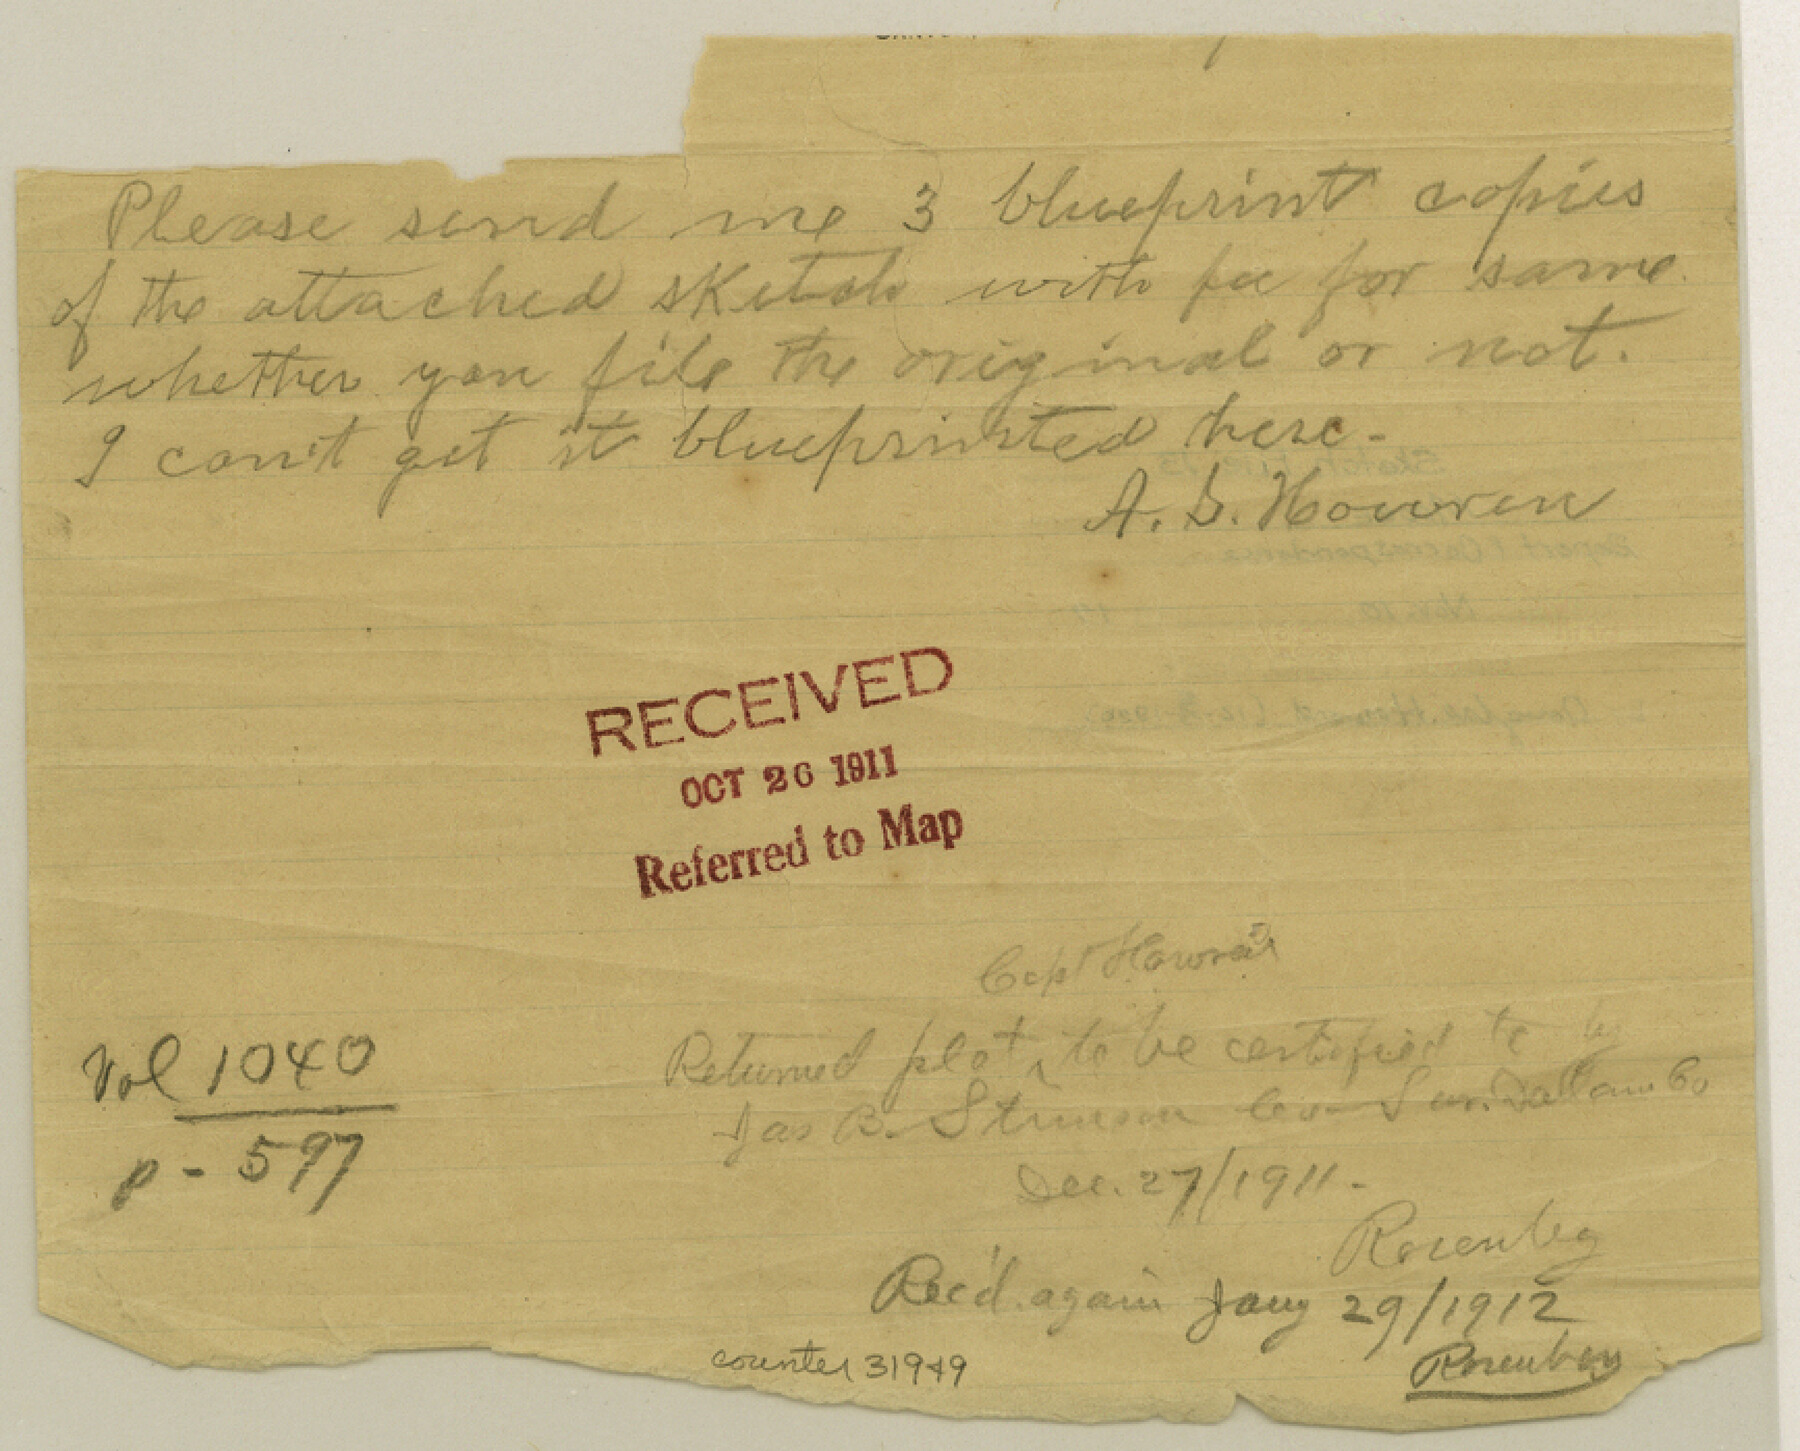 Please send me 3 blueprint copies
of the attached sketch with fee for same
whether you file the original or not.
I can't get it blueprinted here -
RECEIVED
OCT 26 1911
Referred to Map
Capt
Returned plat, to be certified to by
Jas B. Stinson Co Sur. Dallam Co
Dec. 27/1911 -
Rosenberg
Vol 1040
p - 597
Rec'd. again Jany 29/1912
Rosenberg
counter 31949